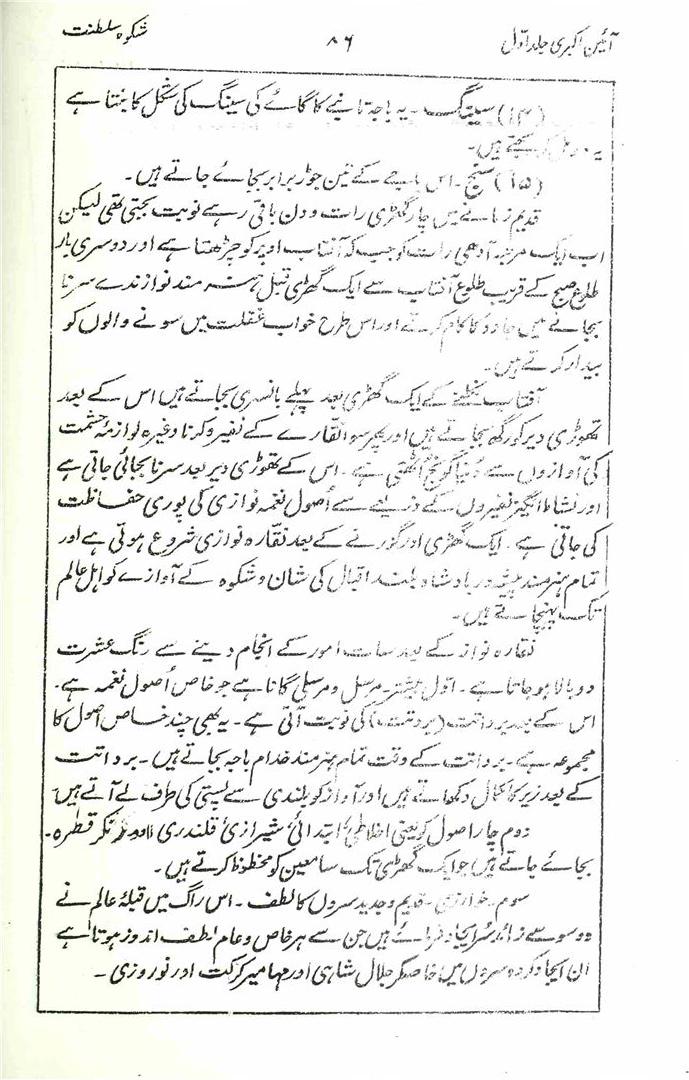 آئین اکبری جلد اوّل
۸۶
شکوہ سلطنت
(۱۴) سینگ۔ یہ باجہ تانبے کا گائے کی سینگ کی شکل کا بنتا ہے
یہ کہتے ہیں۔
(۱۵) سنج۔ اس باجے کے تین جوڑ برابر بجائے جاتے ہیں۔
قدیم زمانے میں چار گھڑی رات و دن باقی رہے نوبت بجتی تھی لیکن
اب ایک مرتبہ آدھی رات کو جب کہ آفتاب اوپر کو چڑھتا ہے اور دوسری بار
طلوع صبح کے قریب طلوع آفتاب سے ایک گھڑی قبل ہنر مند نوازندے سرنا
بجانے میں جادو کا کام کرتے اور اس طرح خواب غفلت میں سونے والوں کو
بیدار کرتے ہیں۔
آفتاب نکلنے کے ایک گھڑی بعد پہلے بانسری بجاتے ہیں اس کے بعد
تھوڑی دیر کورگہ بجاتے ہیں اور پھر سوا نقارے کے نفیر و کرنا وغیرہ لوازمۂ حشمت
کی آوازوں سے دنیا گونج اٹھتی ہے۔ اس کے تھوڑی دیر بعد سرنا بجائی جاتی ہے
اور نشاط انگیز نفیروں کے ذریعے سے اُصول نغمہ نوازی کی پوری حفاظت
کی جاتی ہے۔ ایک گھڑی اور گزرنے کے بعد نقّارہ نوازی شروع ہوتی ہے اور
تمام ہنرمند پیشہ ور بادشاہ بلند اقبال کی شان و شکوہ کے آوازے کو اہل عالم
تک پہنچاتے ہیں۔
نقارہ نواز کے بعد سات امور کے انجام دینے سے رنگ عشرت
دوبالا ہو جاتا ہے۔ اوّل بیشتر۔ مرسل و مرسلی گانا ہے جو خاص اُصول نغمہ ہے۔
اس کے بعد برداتت (بردشت) کی نوبت آتی ہے۔ یہ بھی چند خاص اصول کا
مجموعہ ہے۔ برداتت کے وقت تمام ہنرمند خدام باجہ بجاتے ہیں۔ برداتت
کے بعد زیر کا کمال دکھاتے ہیں اور آواز کو بلندی سے پستی کی طرف لے آتے ہیں
دوم چار اصول کو یعنی اخلاطی ابتدائی شیرازی قلندری اور نگر قطرہ۔
بجائے جاتے ہیں جو ایک گھڑی تک سامعین کو محظوظ کرتے ہیں۔
سوم۔ خوارزمی۔ قدیم و جدید سروں کا لطف۔ اس راگ میں قبلۂ عالم نے
دو سو سے زائد سُر ایجاد فرمائے ہیں جن سے ہر خاص و عام لطف اندوز ہوتا ہے
ان ایجاد کردہ سروں میں خاصکر جلال شاہی اور مہا میر کرکت اور نوروزی۔